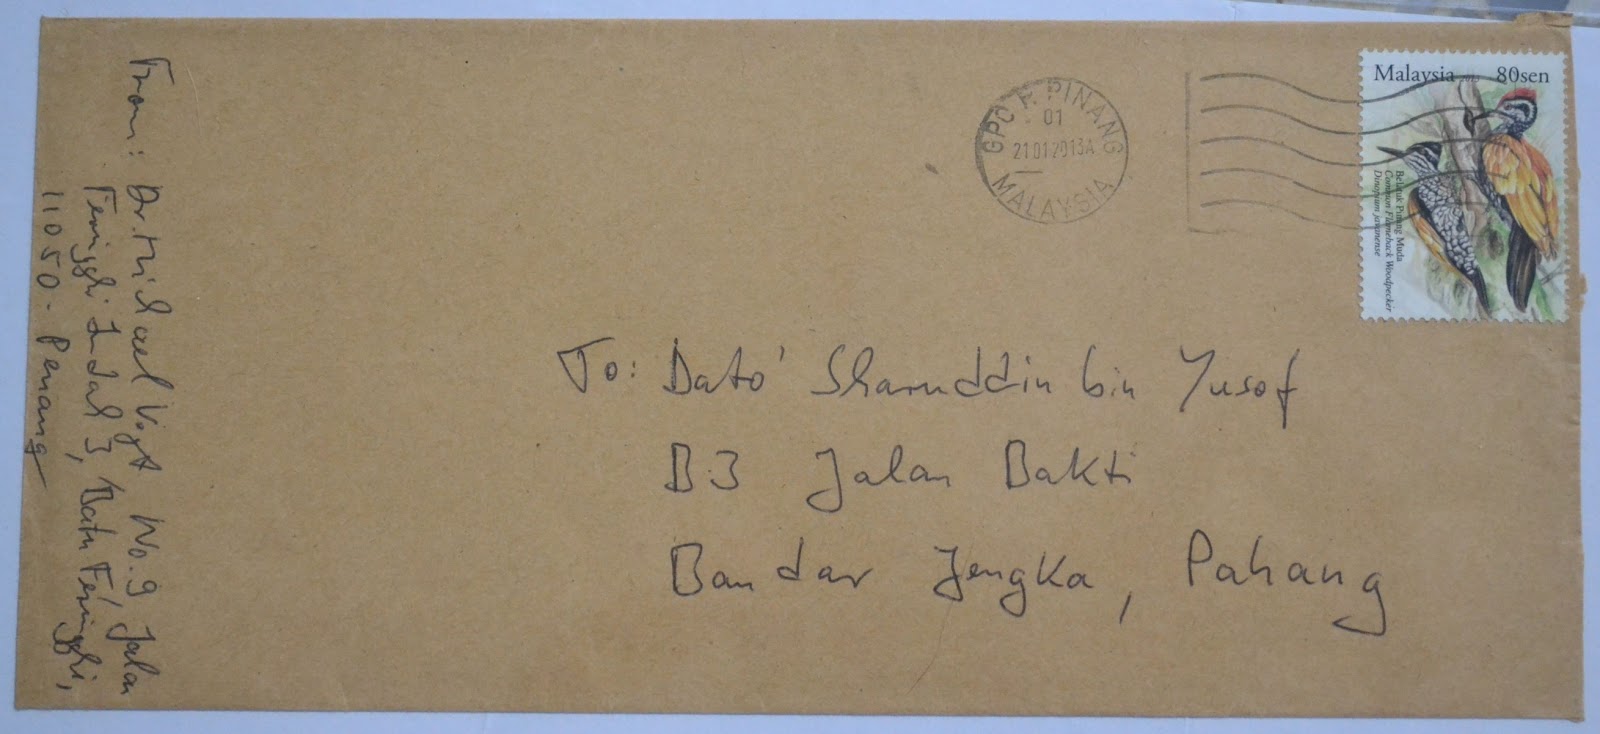 From: Dr. Michael Vogt No.9 Jalan
Feringghi Indah 3, Batu Feringghi,
11050 - Penang
GPO P. PINANG
01
21012013A
MALAYSIA
Malaysia 2013 80sen
Belatuk Pinang Muda
Common Flameback Woodpecker
Dinopium javanense
To: Dato' Sharuddin bin Yusof
B3 Jalan Bakti
Bandar Jengka, Pahang